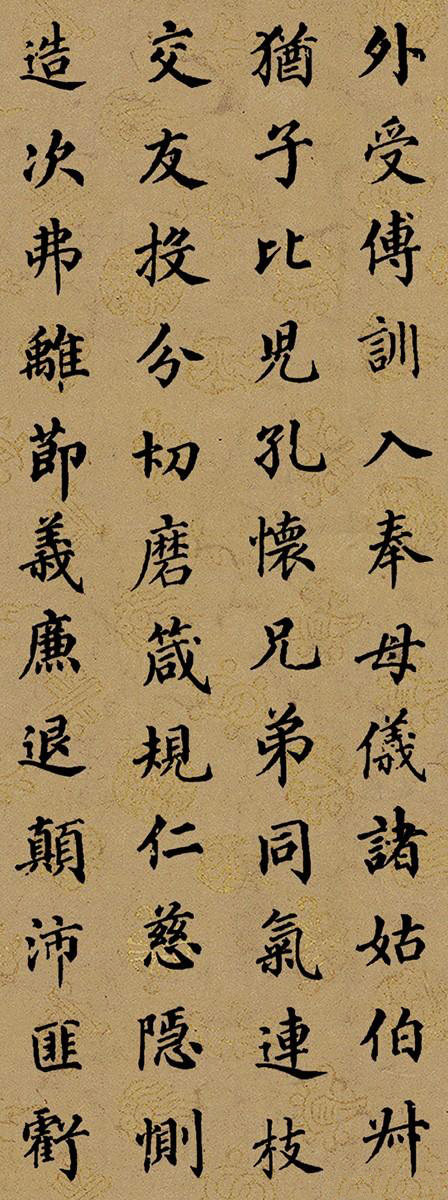 外受傅訓入奉母儀諸姑伯叔
猶子比兒孔懷兄弟同氣連枝
交友投分切磨箴規仁慈隱惻
造次弗離節義廉退顛沛匪虧